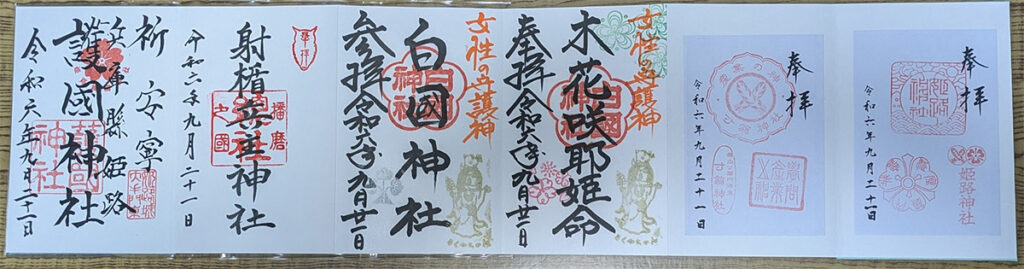 奉拝
姫路神社
姫路神社
令和六年九月二十一日
奉拝
令和六年九月二十一日
女性の守護神
木花咲耶姫命
白國神社
奉拝令和六年九月廿一日
女性の守護神
白国神社
白國神社
参拝令和六年九月廿一日
奉拝
射楯兵主神社
播磨
之國
令和六年九月二十一日
祈安寧
兵庫縣姫路
護國神社
令和六年九月二十一日